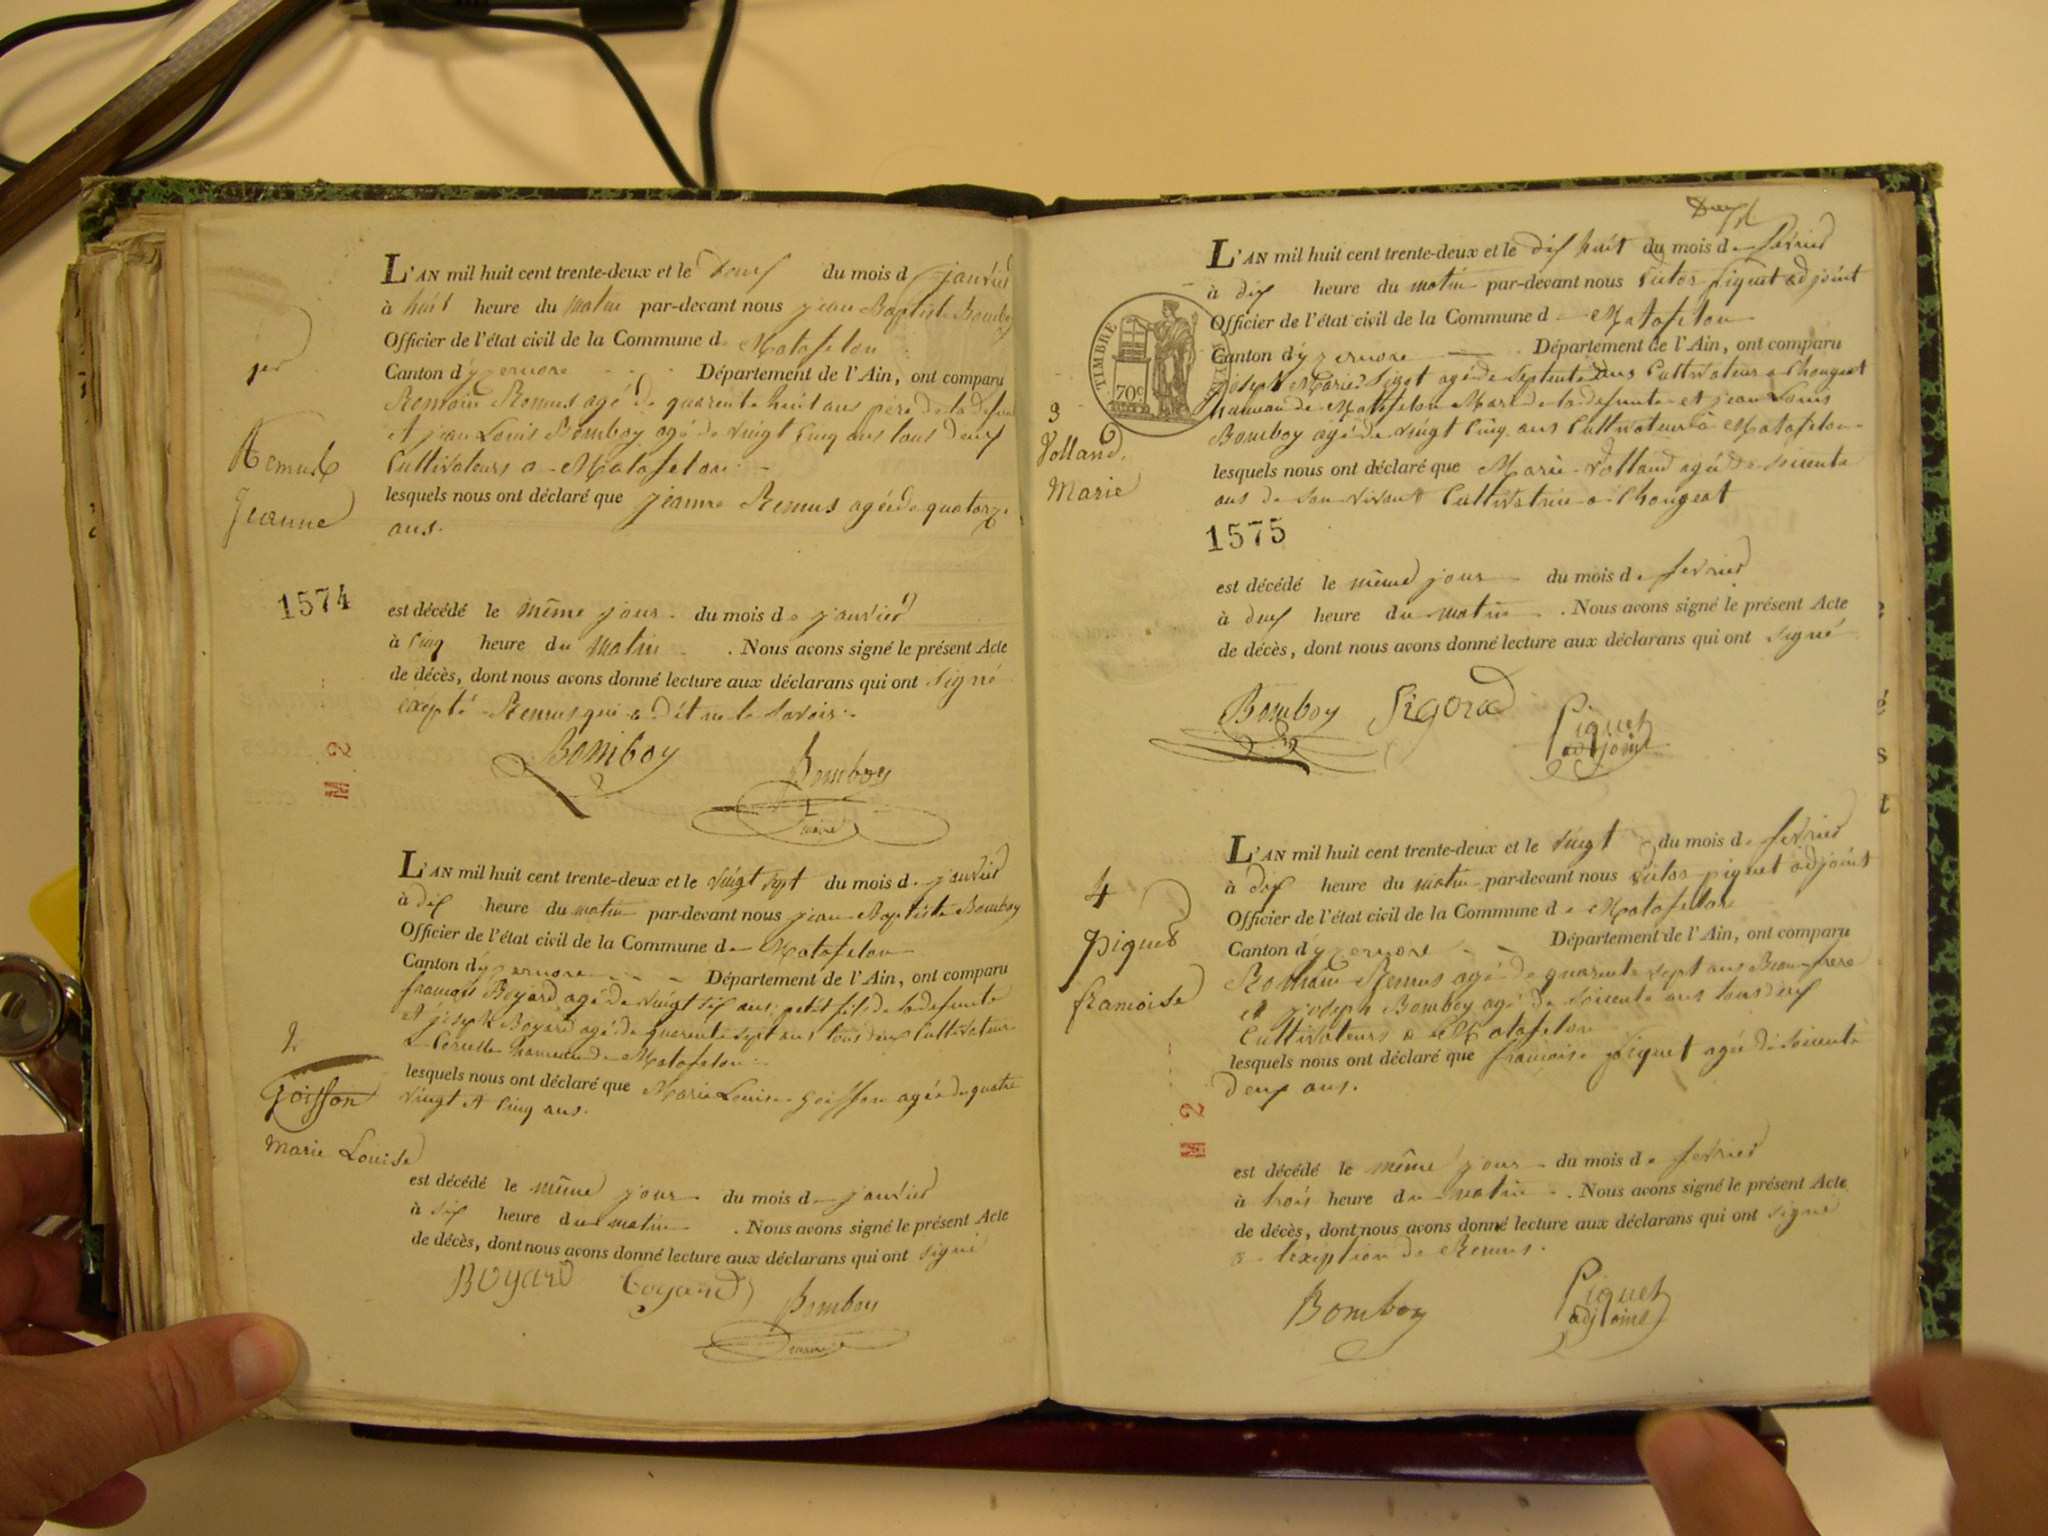 1er
Remus
Jeanne
1574
L'AN mil huit cent trente-deux et le du mois d janvier
à huit heure du matin par-devant nous jean Baptiste Bomboy
Officier de l'état civil de la Commune de Matafelon
Canton d'yzernore Département de l'Ain, ont comparu
Romain Remus agé de quarente huit ans père de la
et jean Louis Bomboy agé de vingt cinq ans tous deux
Cultivateurs a Matafelon
lesquels nous ont déclaré que jeanne Remus agée de quatorze
ans.
est décédé le même jour du mois de janvier
à cinq heure du matin . Nous avons signé le présent Acte
de décès, dont nous avons donné lecture aux déclarans qui ont signé
excepté Remus qui a dit ne le savoir.
Bomboy Bomboy
maire
M 2
2
Goiffon
Marie Louise
L'AN mil huit cent trente-deux et le vingt sept du mois de janvier
à dix heure du matin par-devant nous jean Baptiste Bomboy
Officier de l'état civil de la Commune de Matafelon
Canton d'yzernore Département de l'Ain, ont comparu
françois Boyard agé de vingt six ans petit fils de la defunte
et joseph Boyard agé de quarente sept ans tous deux Cultivateurs
a hameau de Matafelon
lesquels nous ont déclaré que Marie Louise goiffon agée de quatre
vingt et cinq ans.
est décédé le même jour du mois de janvier
à six heure du matin . Nous avons signé le présent Acte
de décès, dont nous avons donné lecture aux déclarans qui ont signé
Boyard boyard Bomboy
maire
3
Volland
Marie
TIMBRE
70c
L'AN mil huit cent trente-deux et le dix huit du mois de fevrier
à dix heure du matin par-devant nous Victor piguet adjoint
Officier de l'état civil de la Commune de Matafelon
Canton d'yzernore Département de l'Ain, ont comparu
joseph Marie agé de septente ans Cultivateur a Chougeat
hameau de Matafelon Mari de la defunte et jean Louis
Bomboy agé de vingt cinq ans Cultivateur à Matafelon
lesquels nous ont déclaré que Marie Volland agée de soisente
ans de son vivant Cultivatrice a Chougeat
1575
est décédé le même jour du mois de fevrier
à deux heure du matin . Nous avons signé le présent Acte
de décès, dont nous avons donné lecture aux déclarans qui ont signé
Bomboy Piguet
adjoint
4
piguet
francoise
M 2
L'AN mil huit cent trente-deux et le vingt du mois de fevrier
à dix heure du matin par-devant nous Victor piguet adjoint
Officier de l'état civil de la Commune de Matafelon
Canton d'yzernore Département de l'Ain, ont comparu
Romain Remus agé de quarente sept ans Beau frere
et joseph Bomboy agé de soisente ans tous deux
Cultivateurs a Matafelon
lesquels nous ont déclaré que francoise piguet agée de soisente
deux ans.
est décédé le même jour du mois de fevrier
à trois heure du matin . Nous avons signé le présent Acte
de décès, dont nous avons donné lecture aux déclarans qui ont signé
a l'exeption de Remus.
Bomboy Piguet
adjoint